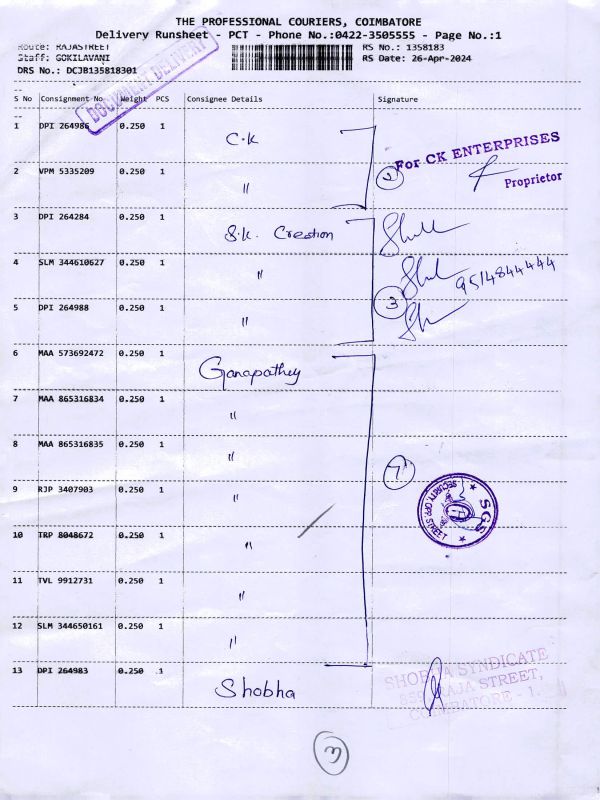 THE PROFESSIONAL COURIERS, COIMBATORE
Delivery Runsheet - PCT - Phone No.:0422-3505555 - Page No.:1
Route: RAJASTREET
Staff: GOKILAVANI
DRS No.: DCJB135818301
RS No.: 1358183
RS Date: 26-Apr-2024
DOCUMENT DELIVERY
S No Consignment No Weight PCS Consignee Details Signature
1 DPI 264986 0.250 1 C.K
For CK ENTERPRISES
Proprietor
2 VPM 5335209 0.250 1 〃 2
3 DPI 264284 0.250 1 S.K. Creation
4 SLM 344610627 0.250 1 〃 9514844444
5 DPI 264988 0.250 1 〃 3
6 MAA 573692472 0.250 1 Ganapathey
7 MAA 865316834 0.250 1 〃
8 MAA 865316835 0.250 1 〃 7
9 RJP 3407903 0.250 1 〃
SGS
SECURITY OPP. STREET
10 TRP 8048672 0.250 1 〃
11 TVL 9912731 0.250 1 〃
12 SLM 344650161 0.250 1 〃
13 DPI 264983 0.250 1 Shobha
SHOBHA SYNDICATE
RAJA STREET,
COIMBATORE - 1.